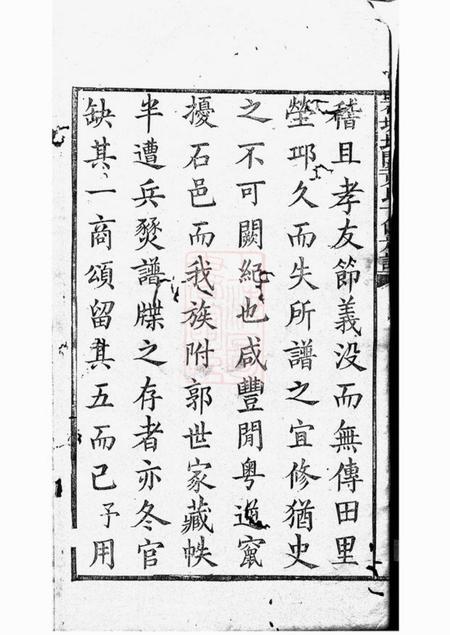 稽且孝友節義没而無傳田里
塋邛久而失所譜之宜修猶史
之不可闕紀也咸豐閒粤逆竄
擾石邑而我族附郭世家藏帙
半遭兵燹譜牒之存者亦冬官
缺其一商頌留其五而已予用